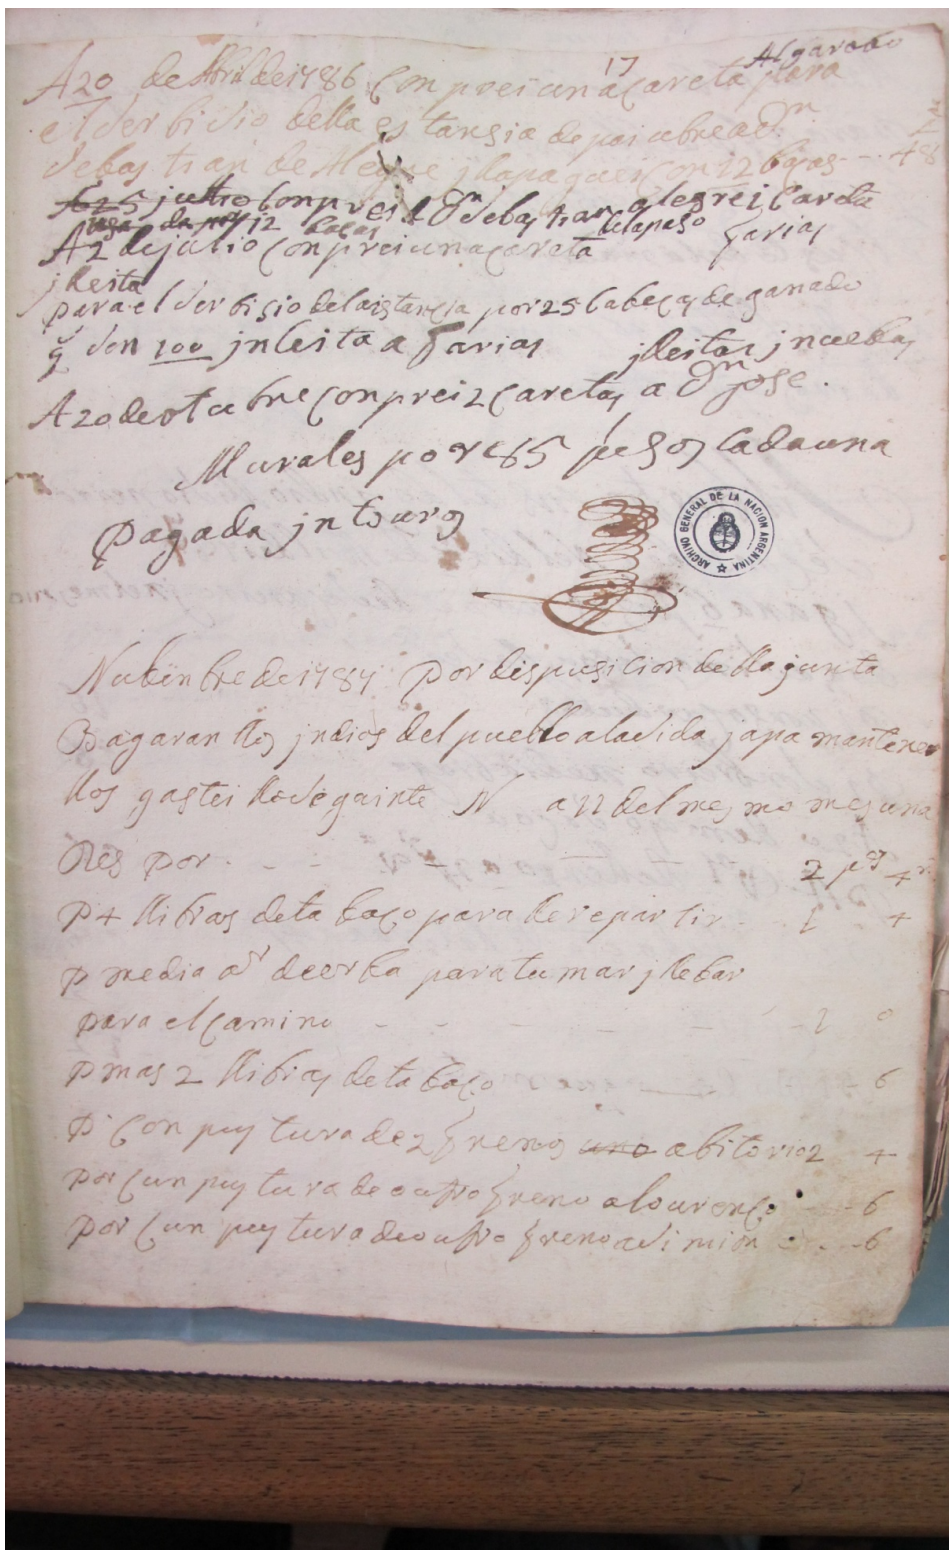 Algarabo
17
A 20 de Abril de 1786 Conprei una Careta para
el serbisio della estansia de paiubre a Dn
Sebastian de Alegre j lla pague con 12 bacas - - 48
A 25 jullio Conprei a Dn Sebastian alegrei Careta
12 bacas
A 2 de julio Conprei una Careta
farias
para el serbisio de la istancia por 25 Cabecas de ganado
q son 100 jnleita a farias
A 20 de otubre Conprei 2 Caretas a Dn jose
Murales por 85 pesos Cada una
Pagada jn touros
ARCHIVO GENERAL DE LA NACION ARGENTINA
Nubinbre de 1787 Por dispusicion de lla junta
Bagaran llos jndios del pueblo a la Sida j apa mantener
llos gastei llo Segainte N a 22 del mesmo mes una
Res por - - - 2 ps 4 r
P 4 llibras de tabaco para Se repartir - - 1 4
P media ar de erba para tumar j llebar
para el Camino - - - - - - 1 0
P mas 2 llibras de tabaco - 6
P Conpustura de 2 frenos uno a bitorio 2 4
por Cunpustura de outro freno a lourenço - 6
por Cunpustura de outro freno a Simion - - 6